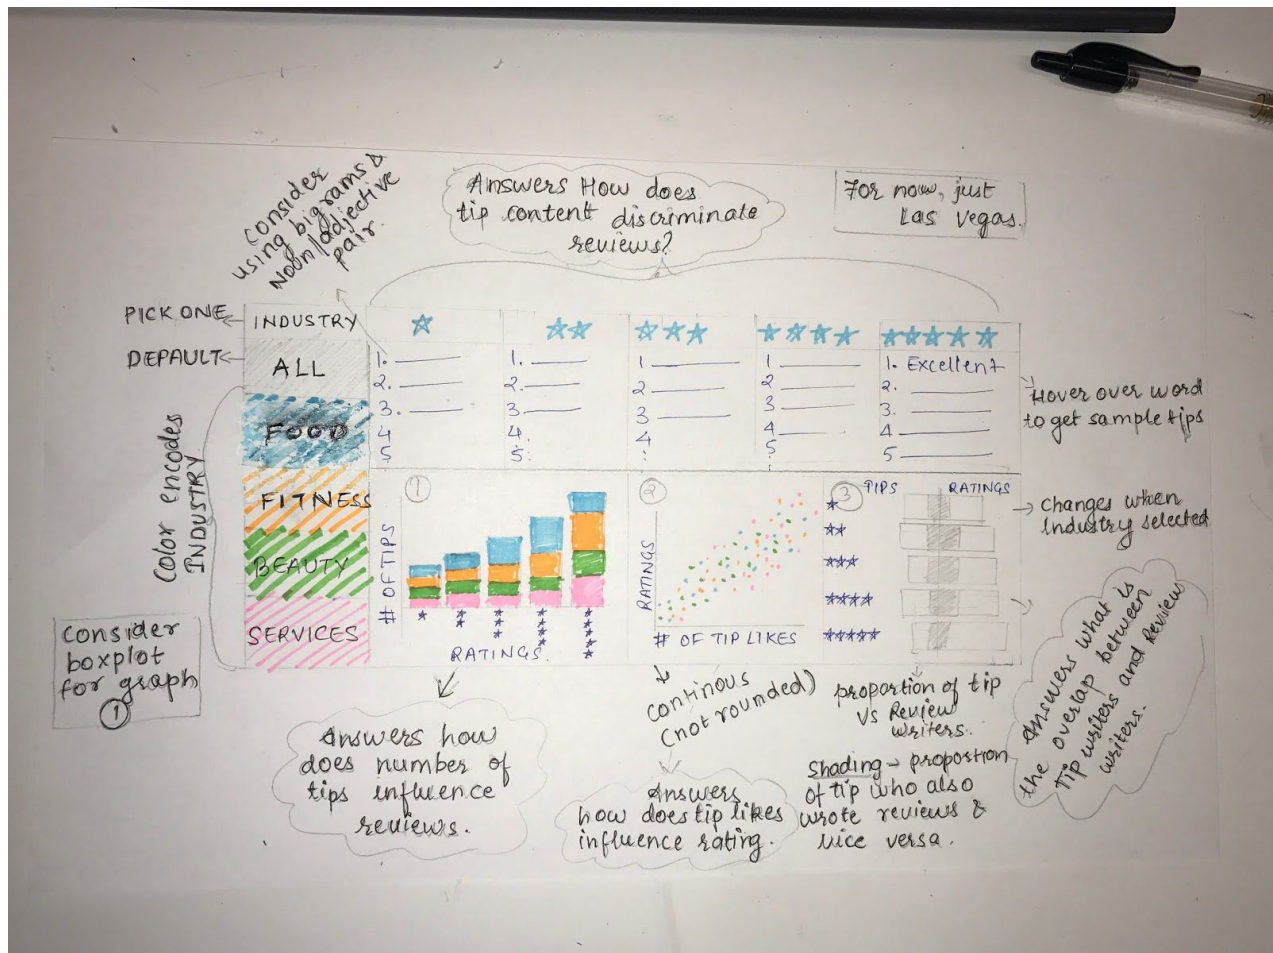 Consider
using bigrams &
Noon/adjective
pair.
Answers How does
tip content discriminate
reviews?
For now, just
Las Vegas.
PICK ONE
INDUSTRY
DEPAULT
ALL
FOOD
FITNESS
BEAUTY
SERVICES
Color encodes
INDUSTRY
1.
2.
3.
4
5
1.
2.
3.
4.
5.
1
2
3
4
1
2
3
4
1. Excellent
2.
3.
4
5
Hover over word
to get sample tips
1
# OF TIPS
RATINGS.
2
RATINGS
# OF TIP LIKES
3
TIPS
RATINGS
Changes when
Industry selected
Consider
boxplot
for graph
1
Answers how
does number of
tips influence
reviews.
continous
(not rounded)
Answers
how does tip likes
influence rating.
proportion of tip
vs Review
writers.
Shading → proportion
of tip who also
wrote reviews &
vice versa.
Answers what is
the overlap between
Tip writers and Review
writers.